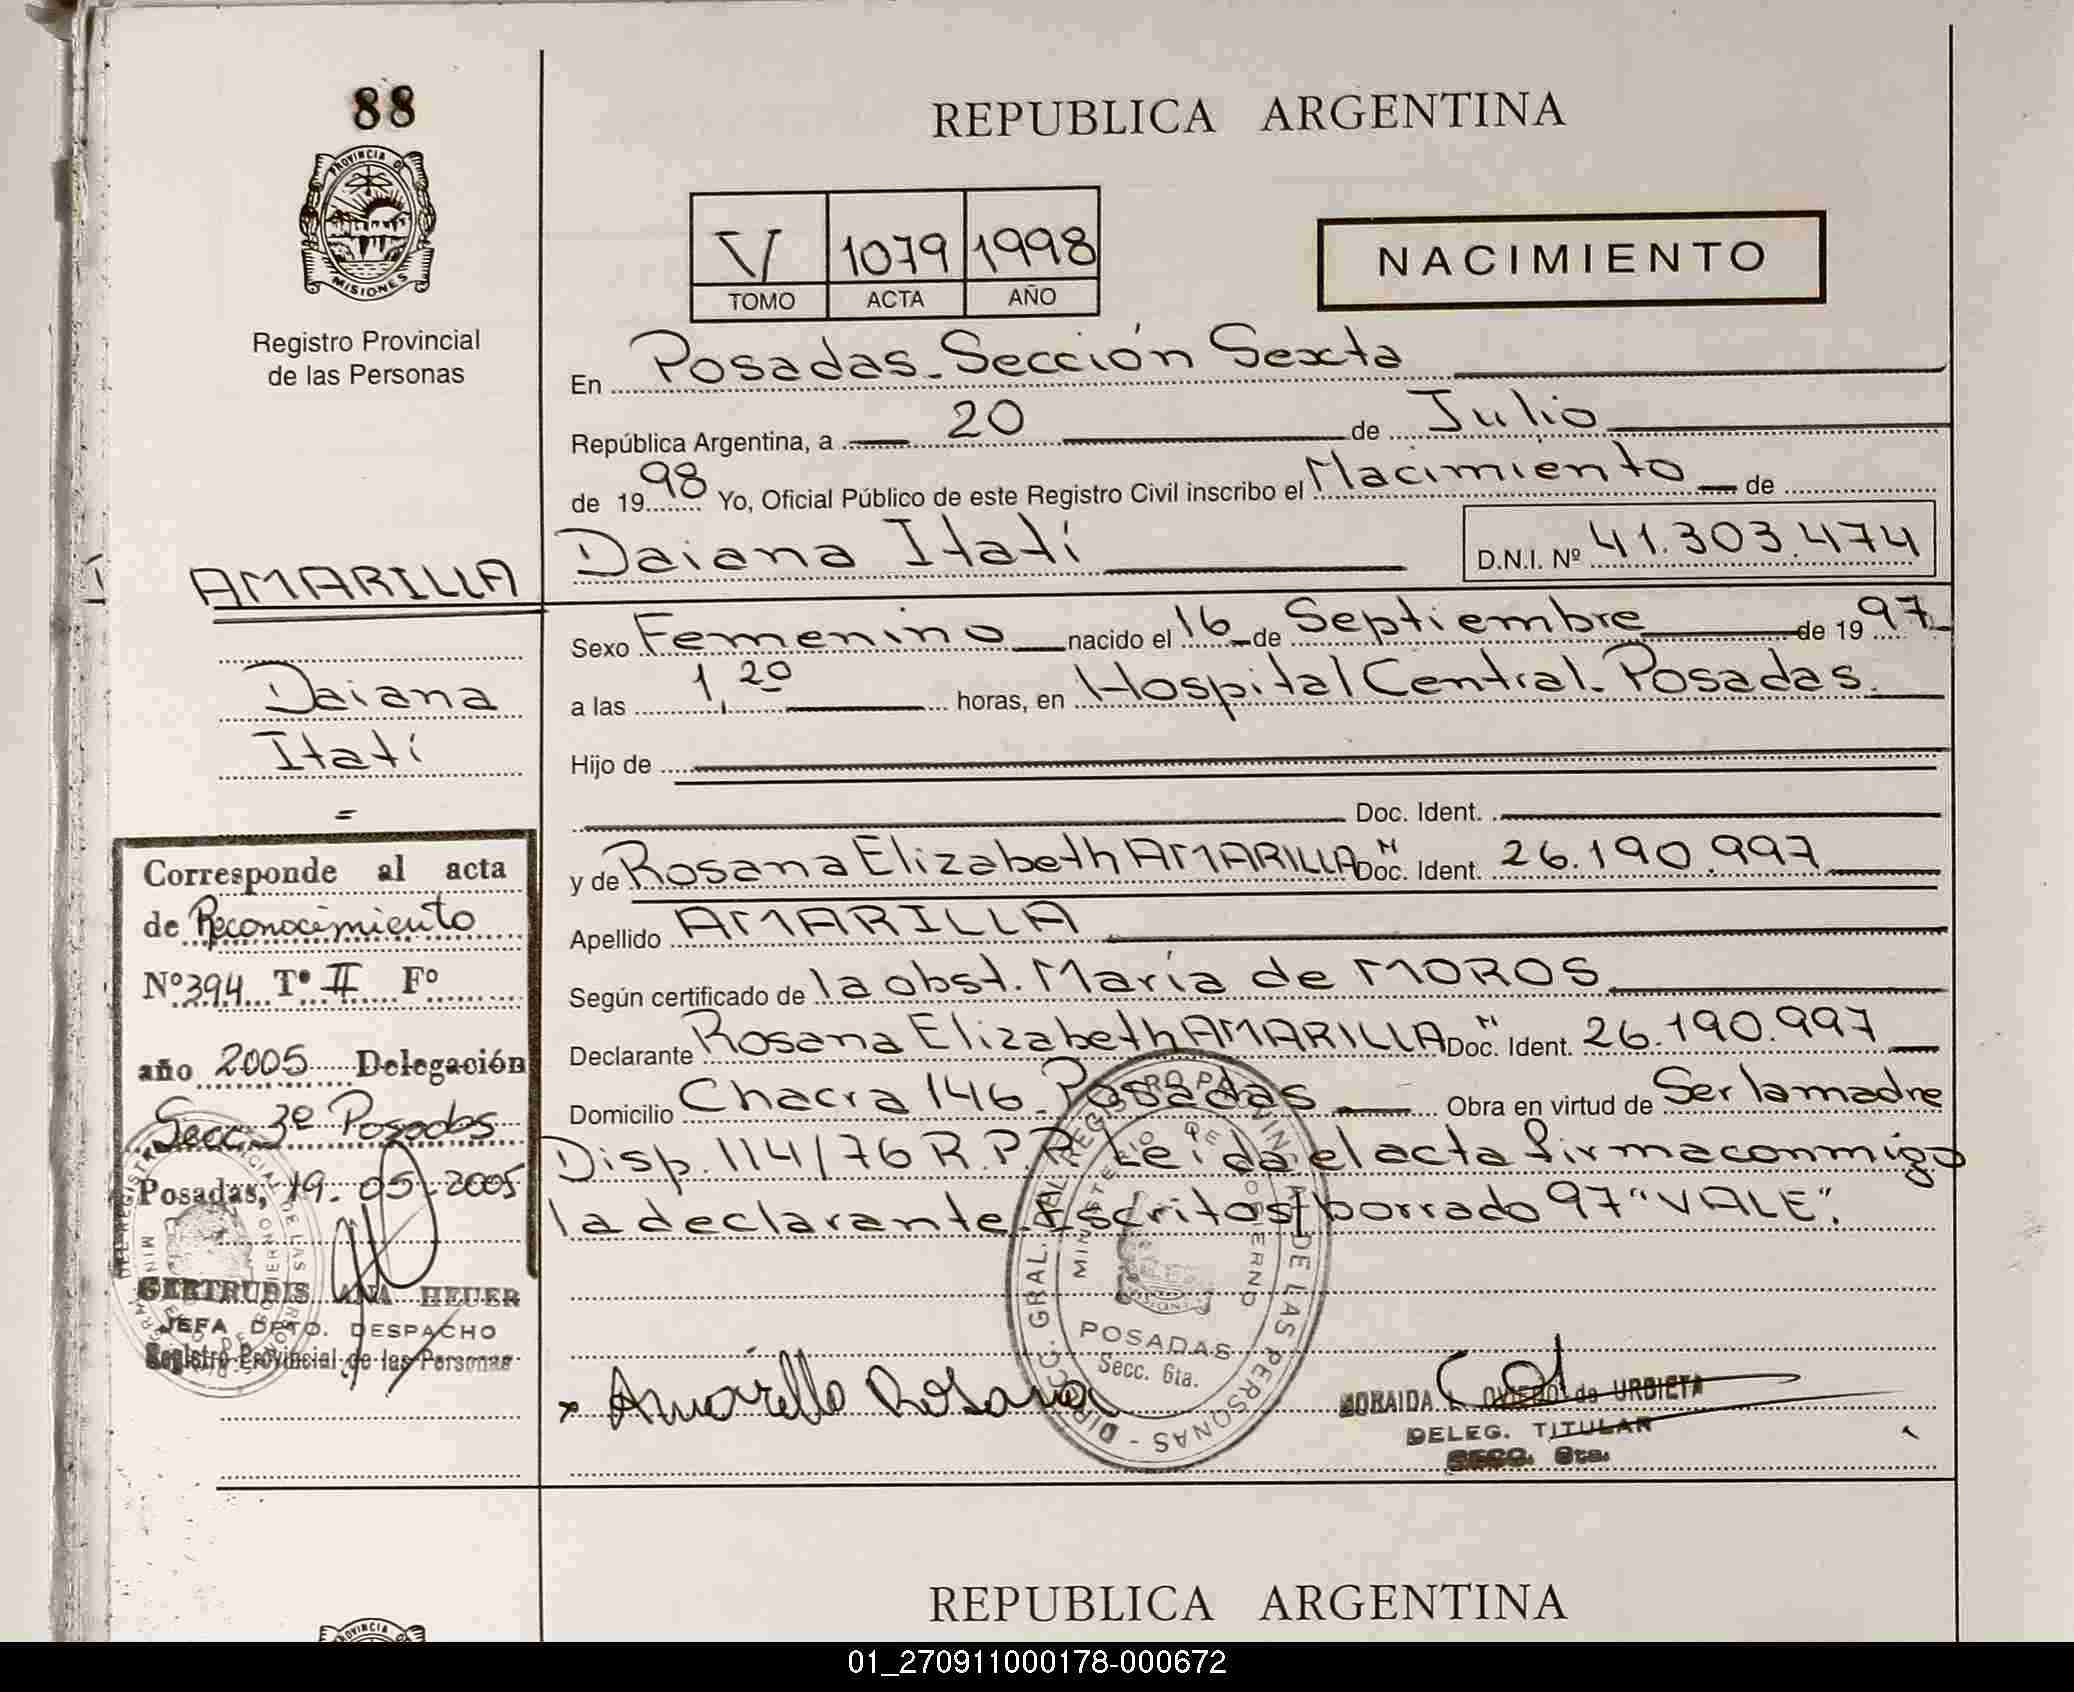 88
PROVINCIA DE
MISIONES
Registro Provincial
de las Personas
REPUBLICA ARGENTINA
V 1079 1998
TOMO ACTA AÑO
NACIMIENTO
En Posadas. Sección Sexta
República Argentina, a 20 de Julio
de 1998 Yo, Oficial Público de este Registro Civil inscribo el Nacimiento de
Daiana Itatí D.N.I. Nº 41.303.474
Sexo Femenino nacido el 16 de Septiembre de 1997
a las 1,20 horas, en Hospital Central. Posadas.
Hijo de
Doc. Ident.
y de Rosana Elizabeth AMARILLA Doc. Ident. 26.190.997
Apellido AMARILLA
Según certificado de la obst. María de MOROS
Declarante Rosana Elizabeth AMARILLA Doc. Ident. 26.190.997
Domicilio Chacra 146. Posadas Obra en virtud de Ser la madre
Disp. 114/76 R.P.P. Leída el acta firma conmigo
la declarante. Escritos/borrado 97 "VALE".
AMARILLA
Daiana
Itatí
=
Corresponde al acta
de Reconocimiento
Nº 394 Tº II Fº
año 2005 Delegación
Secc. 3º Posadas
Posadas, 19.05.2005
GERTRUDIS ANA HEUER
JEFA DPTO. DESPACHO
Registro Provincial de las Personas
DIRECC. GRAL. DEL REGISTRO PROVINCIAL DE LAS PERSONAS
MINISTERIO DE GOBIERNO
POSADAS
Secc. 6ta.
x Amarilla Rosana
OVIEDO de URBIETA
DELEG. TITULAR
SECC. 6ta.
REPUBLICA ARGENTINA
PROVINCIA
01_270911000178-000672